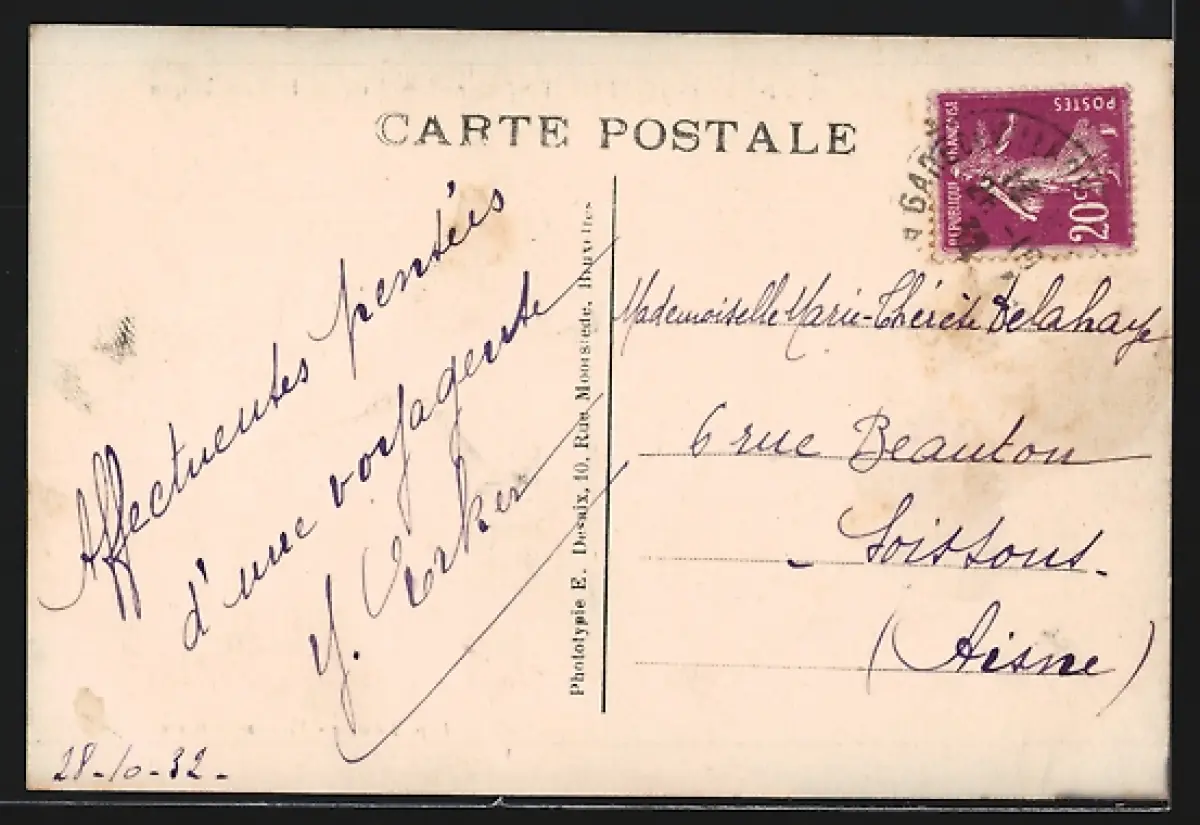 CARTE POSTALE
POSTES
REPUBLIQUE FRANÇAISE
20c
GARE
Affectueuses pensées
d'une voyageuse
Y.
28-10-32-
Photolypie E. Desaix, 10, Rue Moorslede, Bruxelles
Mademoiselle Marie-Thérèse Delahaye
6 rue Beauton
- Soissons.
(Aisne)